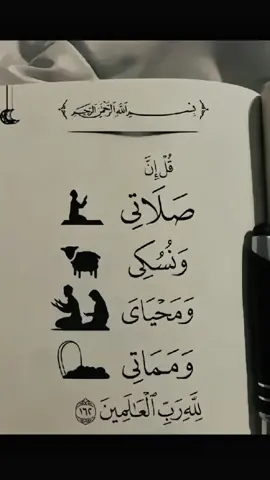 بِسْمِ اللَّهِ الرَّحْمَٰنِ الرَّحِيمِ
قُلْ إِنَّ
صَلَاتِي
وَنُسُكِي
وَمَحْيَايَ
وَمَمَاتِي
لِلَّهِ رَبِّ الْعَالَمِينَ ١٦٢